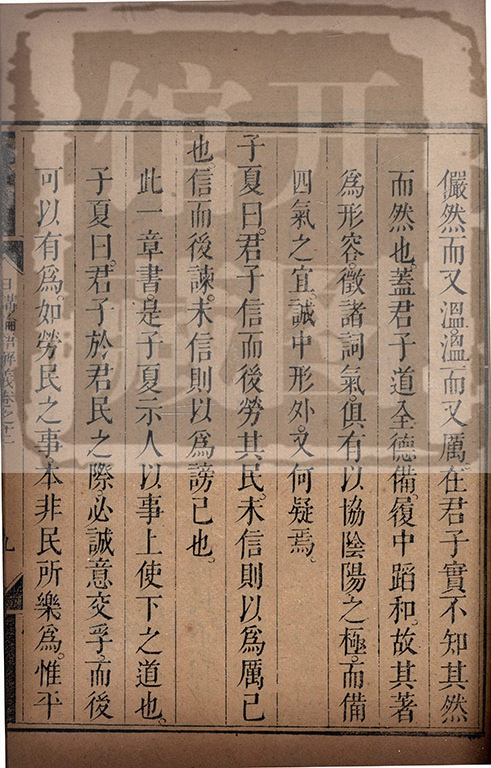 儼然而又溫。溫而又厲在君子實不知其然
而然也。蓋君子道全德備。履中蹈和。故其著
為形容。徵諸詞氣。俱有以協陰陽之極。而備
四氣之宜。誠中形外。又何疑焉。
子夏曰。君子信而後勞其民。未信則以為厲己
也。信而後諫。未信則以為謗己也。
此一章書。是子夏示人以事上使下之道也。
子夏曰。君子於君民之際。必誠意交孚。而後
可以有為。如勞民之事。本非民所樂為。惟平
日講
解義卷之十二
九